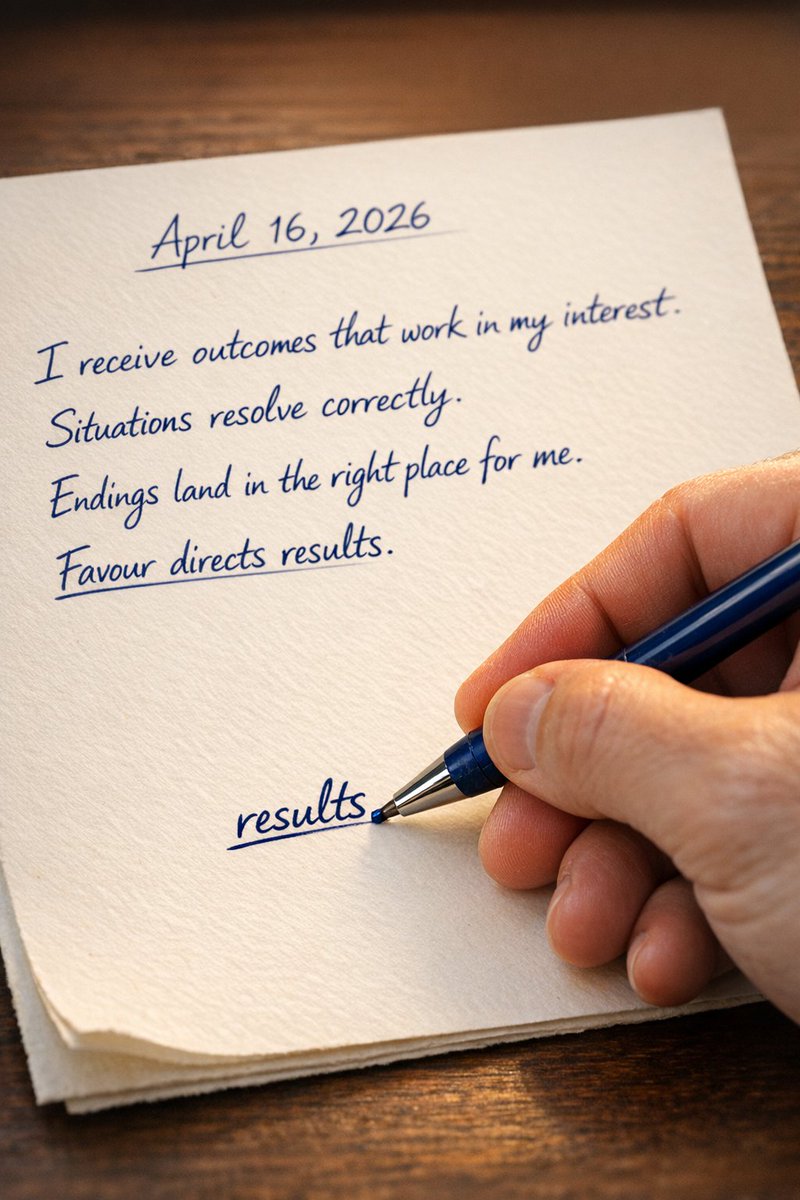 April 16, 2026
I receive outcomes that work in my interest.
Situations resolve correctly.
Endings land in the right place for me.
Favour directs results.
results